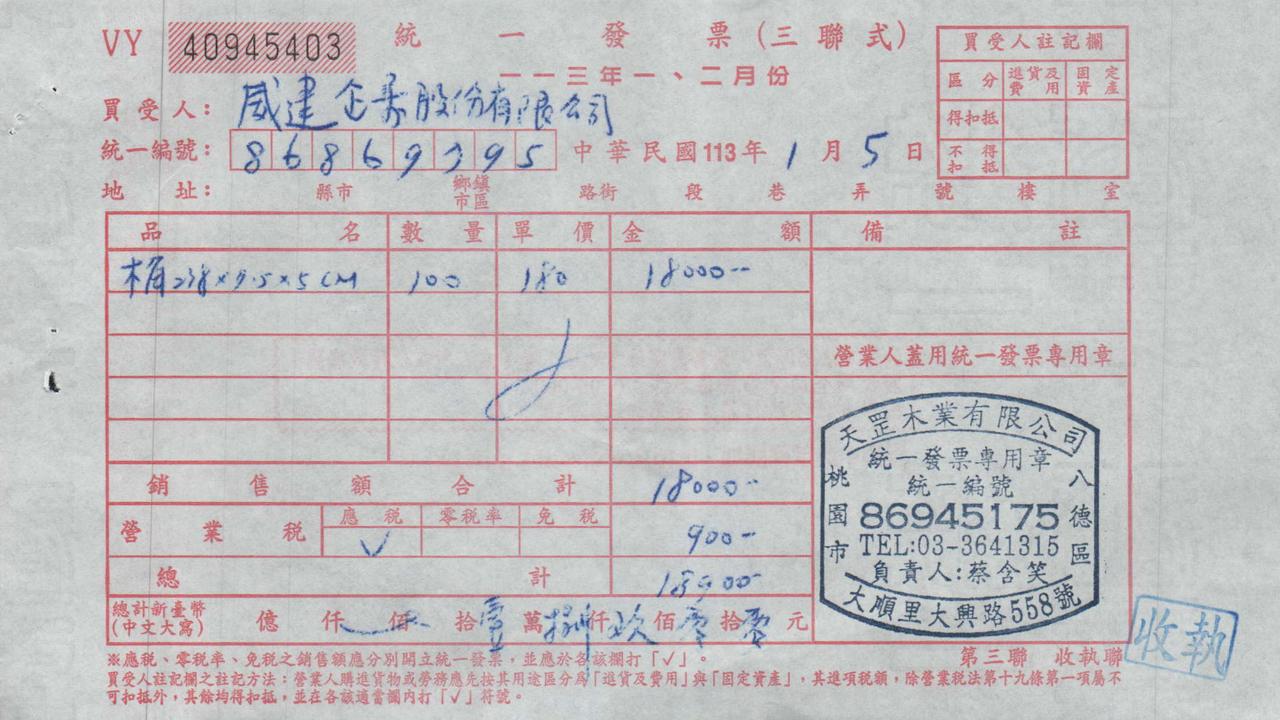 VY 40945403 統一發票(三聯式)
一一三年一、二月份
買受人註記欄
區分 進貨及費用 固定資產
得扣抵
不得扣抵
買受人: 威建企業股份有限公司
統一編號: 86869395 中華民國113年1月5日
地址: 縣市 鄉鎮市區 路街 段 巷 弄 號 樓 室
品名 數量 單價 金額 備註
238×9.5×5CM 100 180 18000--
營業人蓋用統一發票專用章
銷售額合計 18000--
營業稅 應稅 零稅率 免稅
✓ 900--
總計 18900--
總計新臺幣(中文大寫) 億 仟 佰 拾壹萬捌仟玖佰零拾零元
天罡木業有限公司
統一發票專用章
統一編號
86945175
TEL:03-3641315
負責人:蔡含笑
桃園市
八德區
大順里大興路558號
※應稅、零稅率、免稅之銷售額應分別開立統一發票,並應於各該欄打「✓」。
第三聯 收執聯
收執
買受人註記欄之註記方法:營業人購進貨物或勞務應先按其用途區分為「進貨及費用」與「固定資產」,其進項稅額,除營業稅法第十九條第一項屬不
可扣抵外,其餘均得扣抵,並在各該適當欄內打「✓」符號。